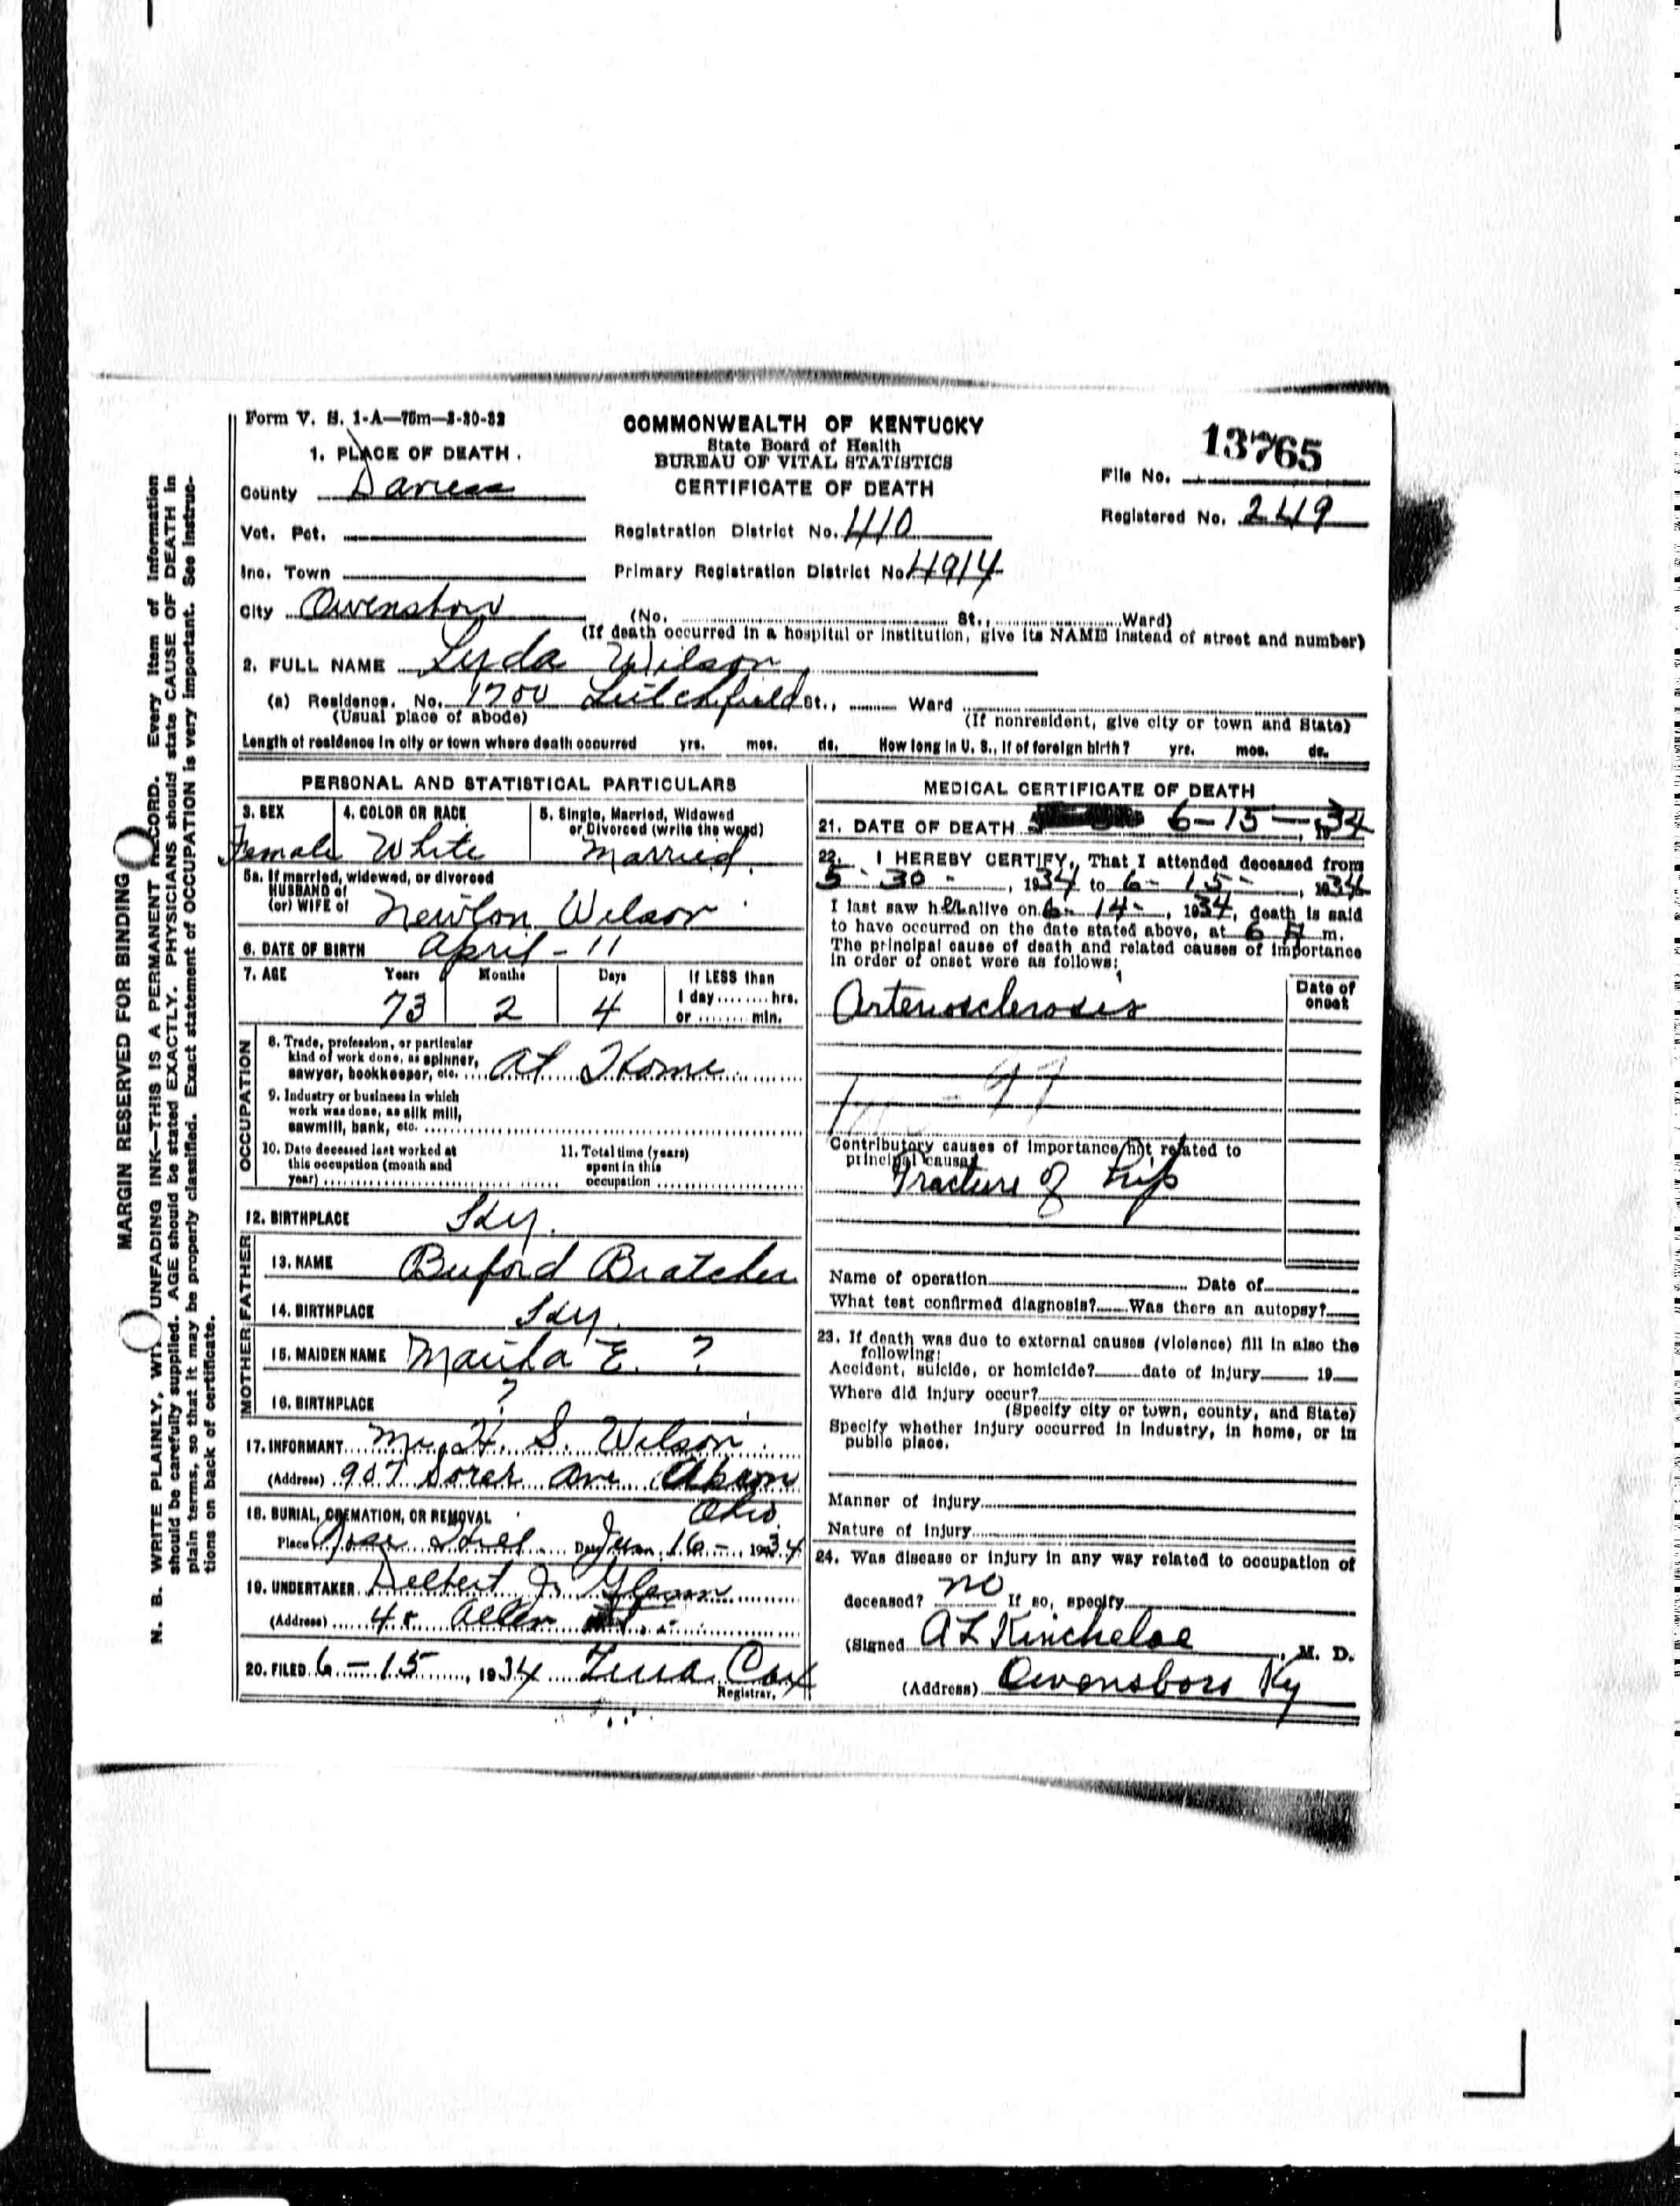 Form V. S. 1-A—75m—3-30-32
COMMONWEALTH OF KENTUCKY
State Board of Health
BUREAU OF VITAL STATISTICS
CERTIFICATE OF DEATH
13765
File No.
Registered No. 249
1. PLACE OF DEATH.
County Daviess
Vot. Pct.
Registration District No. 410
Inc. Town
Primary Registration District No. 4914
City Owensboro
(No. St., Ward)
(If death occurred in a hospital or institution, give its NAME instead of street and number)
2. FULL NAME Luda Wilson
(a) Residence. No. 1700 Leitchfield St., Ward
(Usual place of abode)
(If nonresident, give city or town and State)
Length of residence in city or town where death occurred yrs. mos. ds. How long in U. S., if of foreign birth? yrs. mos. ds.
PERSONAL AND STATISTICAL PARTICULARS
3. SEX
Female
4. COLOR OR RACE
White
5. Single, Married, Widowed
or Divorced (write the word)
Married
5a. If married, widowed, or divorced
HUSBAND of
(or) WIFE of Newton Wilson
6. DATE OF BIRTH April - 11
7. AGE
Years 73
Months 2
Days 4
If LESS than
1 day........hrs.
or........min.
OCCUPATION
8. Trade, profession, or particular
kind of work done, as spinner,
sawyer, bookkeeper, etc. At Home
9. Industry or business in which
work was done, as silk mill,
sawmill, bank, etc.
10. Date deceased last worked at
this occupation (month and
year)
11. Total time (years)
spent in this
occupation
12. BIRTHPLACE Ky.
FATHER
13. NAME Buford Bratcher
14. BIRTHPLACE Ky.
MOTHER
15. MAIDEN NAME E. ?
16. BIRTHPLACE ?
17. INFORMANT H. S. Wilson
(Address) 907 Ave Akron
Ohio
18. BURIAL, CREMATION, OR REMOVAL
Place Rose Hill Date Jun. 16-, 1934
19. UNDERTAKER Delbert J. Glenn
(Address) Allen St.
20. FILED 6-15, 1934 Cox
Registrar.
MEDICAL CERTIFICATE OF DEATH
21. DATE OF DEATH 6-15-, 1934
22. I HEREBY CERTIFY, That I attended deceased from
5-30-, 1934 to 6-15-, 1934
I last saw her alive on 6-14-, 1934, death is said
to have occurred on the date stated above, at 6 A m.
The principal cause of death and related causes of importance
in order of onset were as follows:
Date of
onset
Arteriosclerosis
97
Contributory causes of importance not related to
principal cause:
Fracture of hip
Name of operation Date of
What test confirmed diagnosis? Was there an autopsy?
23. If death was due to external causes (violence) fill in also the
following:
Accident, suicide, or homicide? date of injury 19
Where did injury occur?
(Specify city or town, county, and State)
Specify whether injury occurred in industry, in home, or in
public place.
Manner of injury
Nature of injury
24. Was disease or injury in any way related to occupation of
deceased? no If so, specify
(Signed A L Kincheloe, M. D.
(Address) Owensboro Ky
MARGIN RESERVED FOR BINDING
N. B. WRITE PLAINLY, WITH UNFADING INK—THIS IS A PERMANENT RECORD. Every item of information
should be carefully supplied. AGE should be stated EXACTLY. PHYSICIANS should state CAUSE OF DEATH in
plain terms, so that it may be properly classified. Exact statement of OCCUPATION is very important. See instruc-
tions on back of certificate.